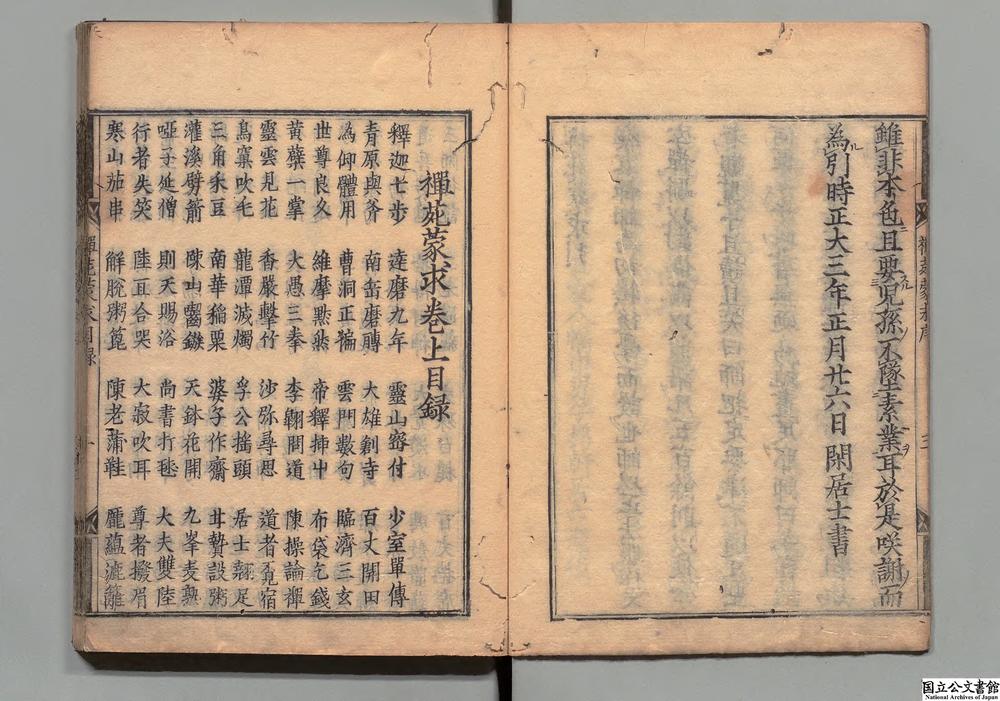 雖非本色且要兒孫不墜素業耳於是咲謝而
為引時正大三年正月廿六日閑居士書
禪苑蒙求序
三
禪苑蒙求卷上目録
釋迦七歩 達磨九年 靈山密付 少室單傳
青原與斧 南岳磨磚 大雄創寺 百丈開田
為仰體用 曹洞正偏 雲門數句 臨濟三玄
世尊良久 維摩默然 帝釋插艸 布袋乞錢
黄蘗一掌 大愚三拳 李翱問道 陳操論禪
靈雲見花 香嚴擊竹 沙弥尋思 道者覓宿
鳥窠吹毛 龍潭滅燭 孚公搖頭 居士翹足
三角乘豆 南華稲粟 婆子作齋 甘贄設粥
灌溪劈箭 陳山齧鏃 天鉢花開 九峯麦熟
啞子延僧 則天賜浴 尚書打毬 大夫雙陸
行者失笑 陸亘合哭 大寂吹耳 尊者撥眉
寒山茄串 解脱粥篦 陳老蒲鞋 龐蘊漉籬
禪苑蒙求目録
一
国立公文書館
National Archives of Japan